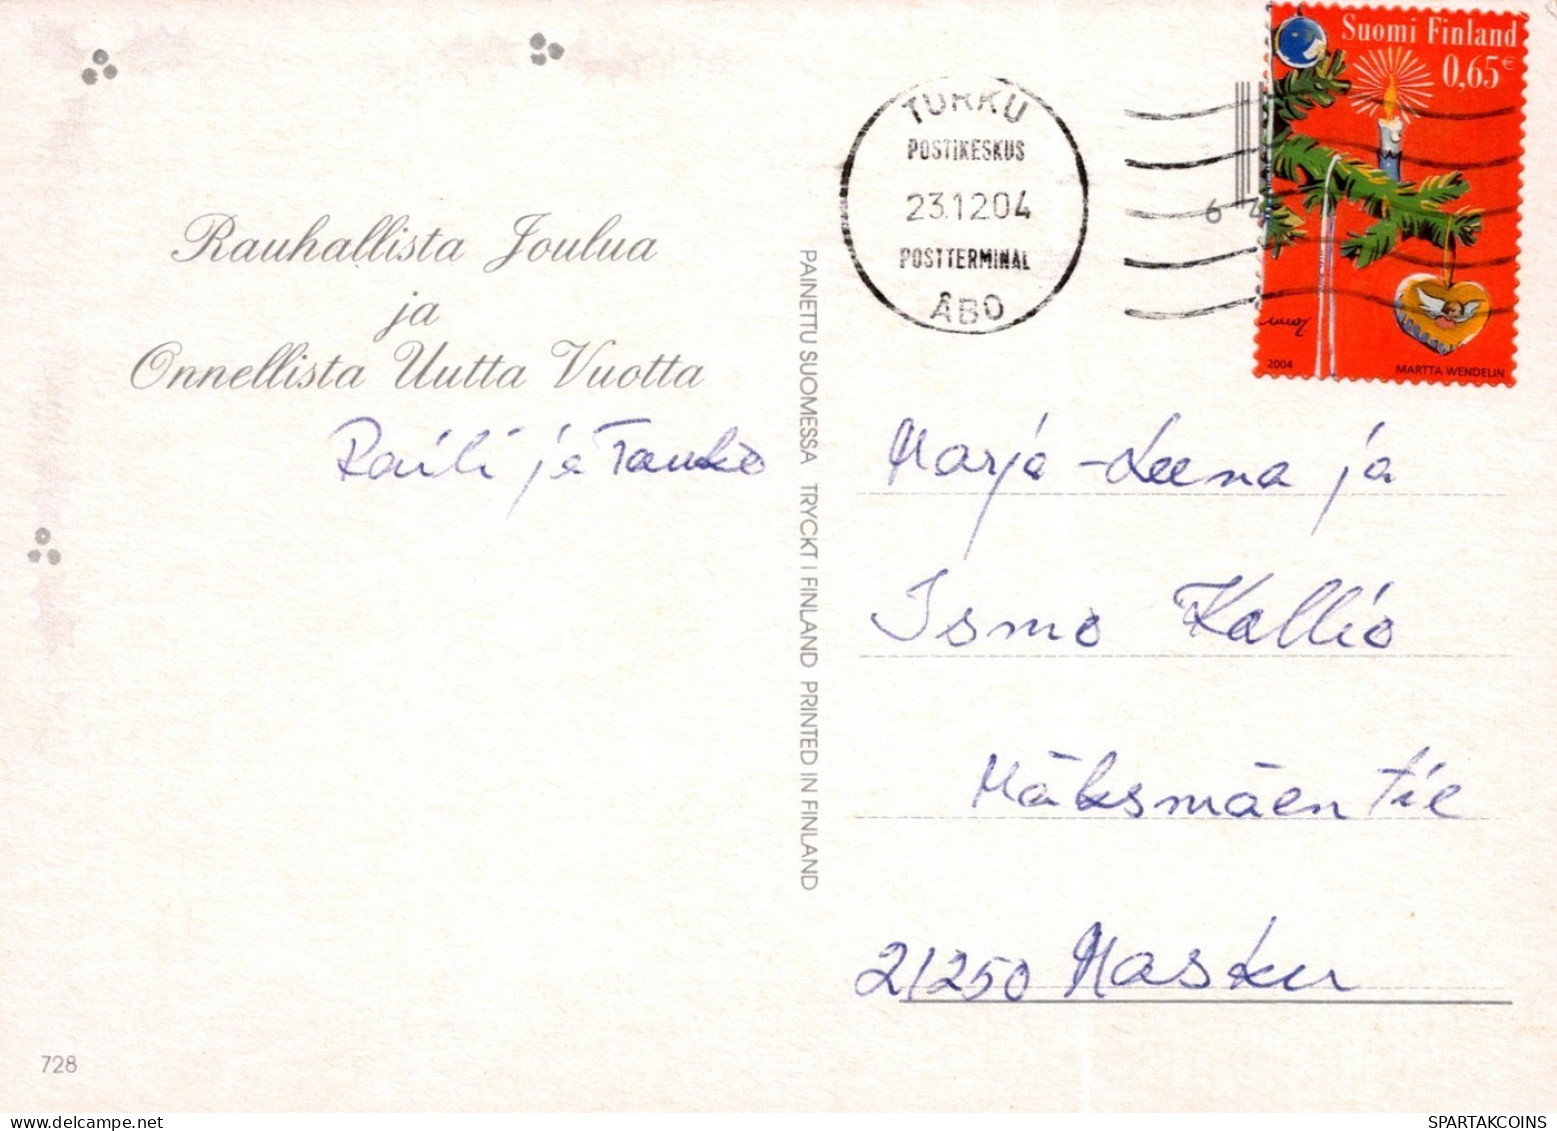 Suomi Finland
0,65€
TURKU
POSTIKESKUS
23.12.04
POSTTERMINAL
ÅBO
6 4
2004
MARTTA WENDELIN
Rauhallista Joulua
ja
Onnellista Uutta Vuotta
Raili ja Tauno
PAINETTU SUOMESSA TRYCKT I FINLAND PRINTED IN FINLAND
Marja-Leena ja
Ismo Kallio
Mäksmäentie
21250 Masku
728
SPARTAKCOINS